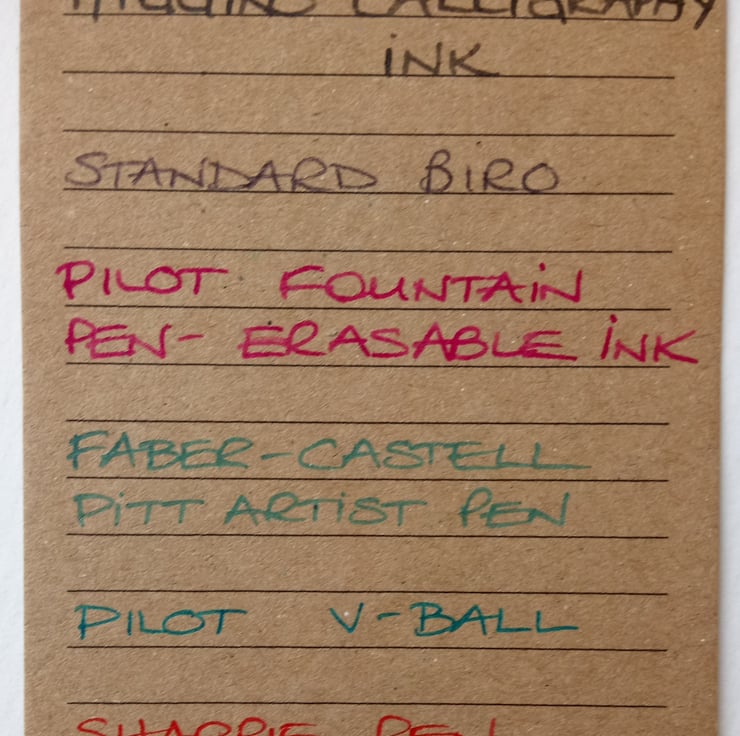 HIGGINS CALLIGRAPHY
INK
STANDARD BIRO
PILOT FOUNTAIN
PEN- ERASABLE INK
FABER-CASTELL
PITT ARTIST PEN
PILOT V-BALL
SHARPIE PEN